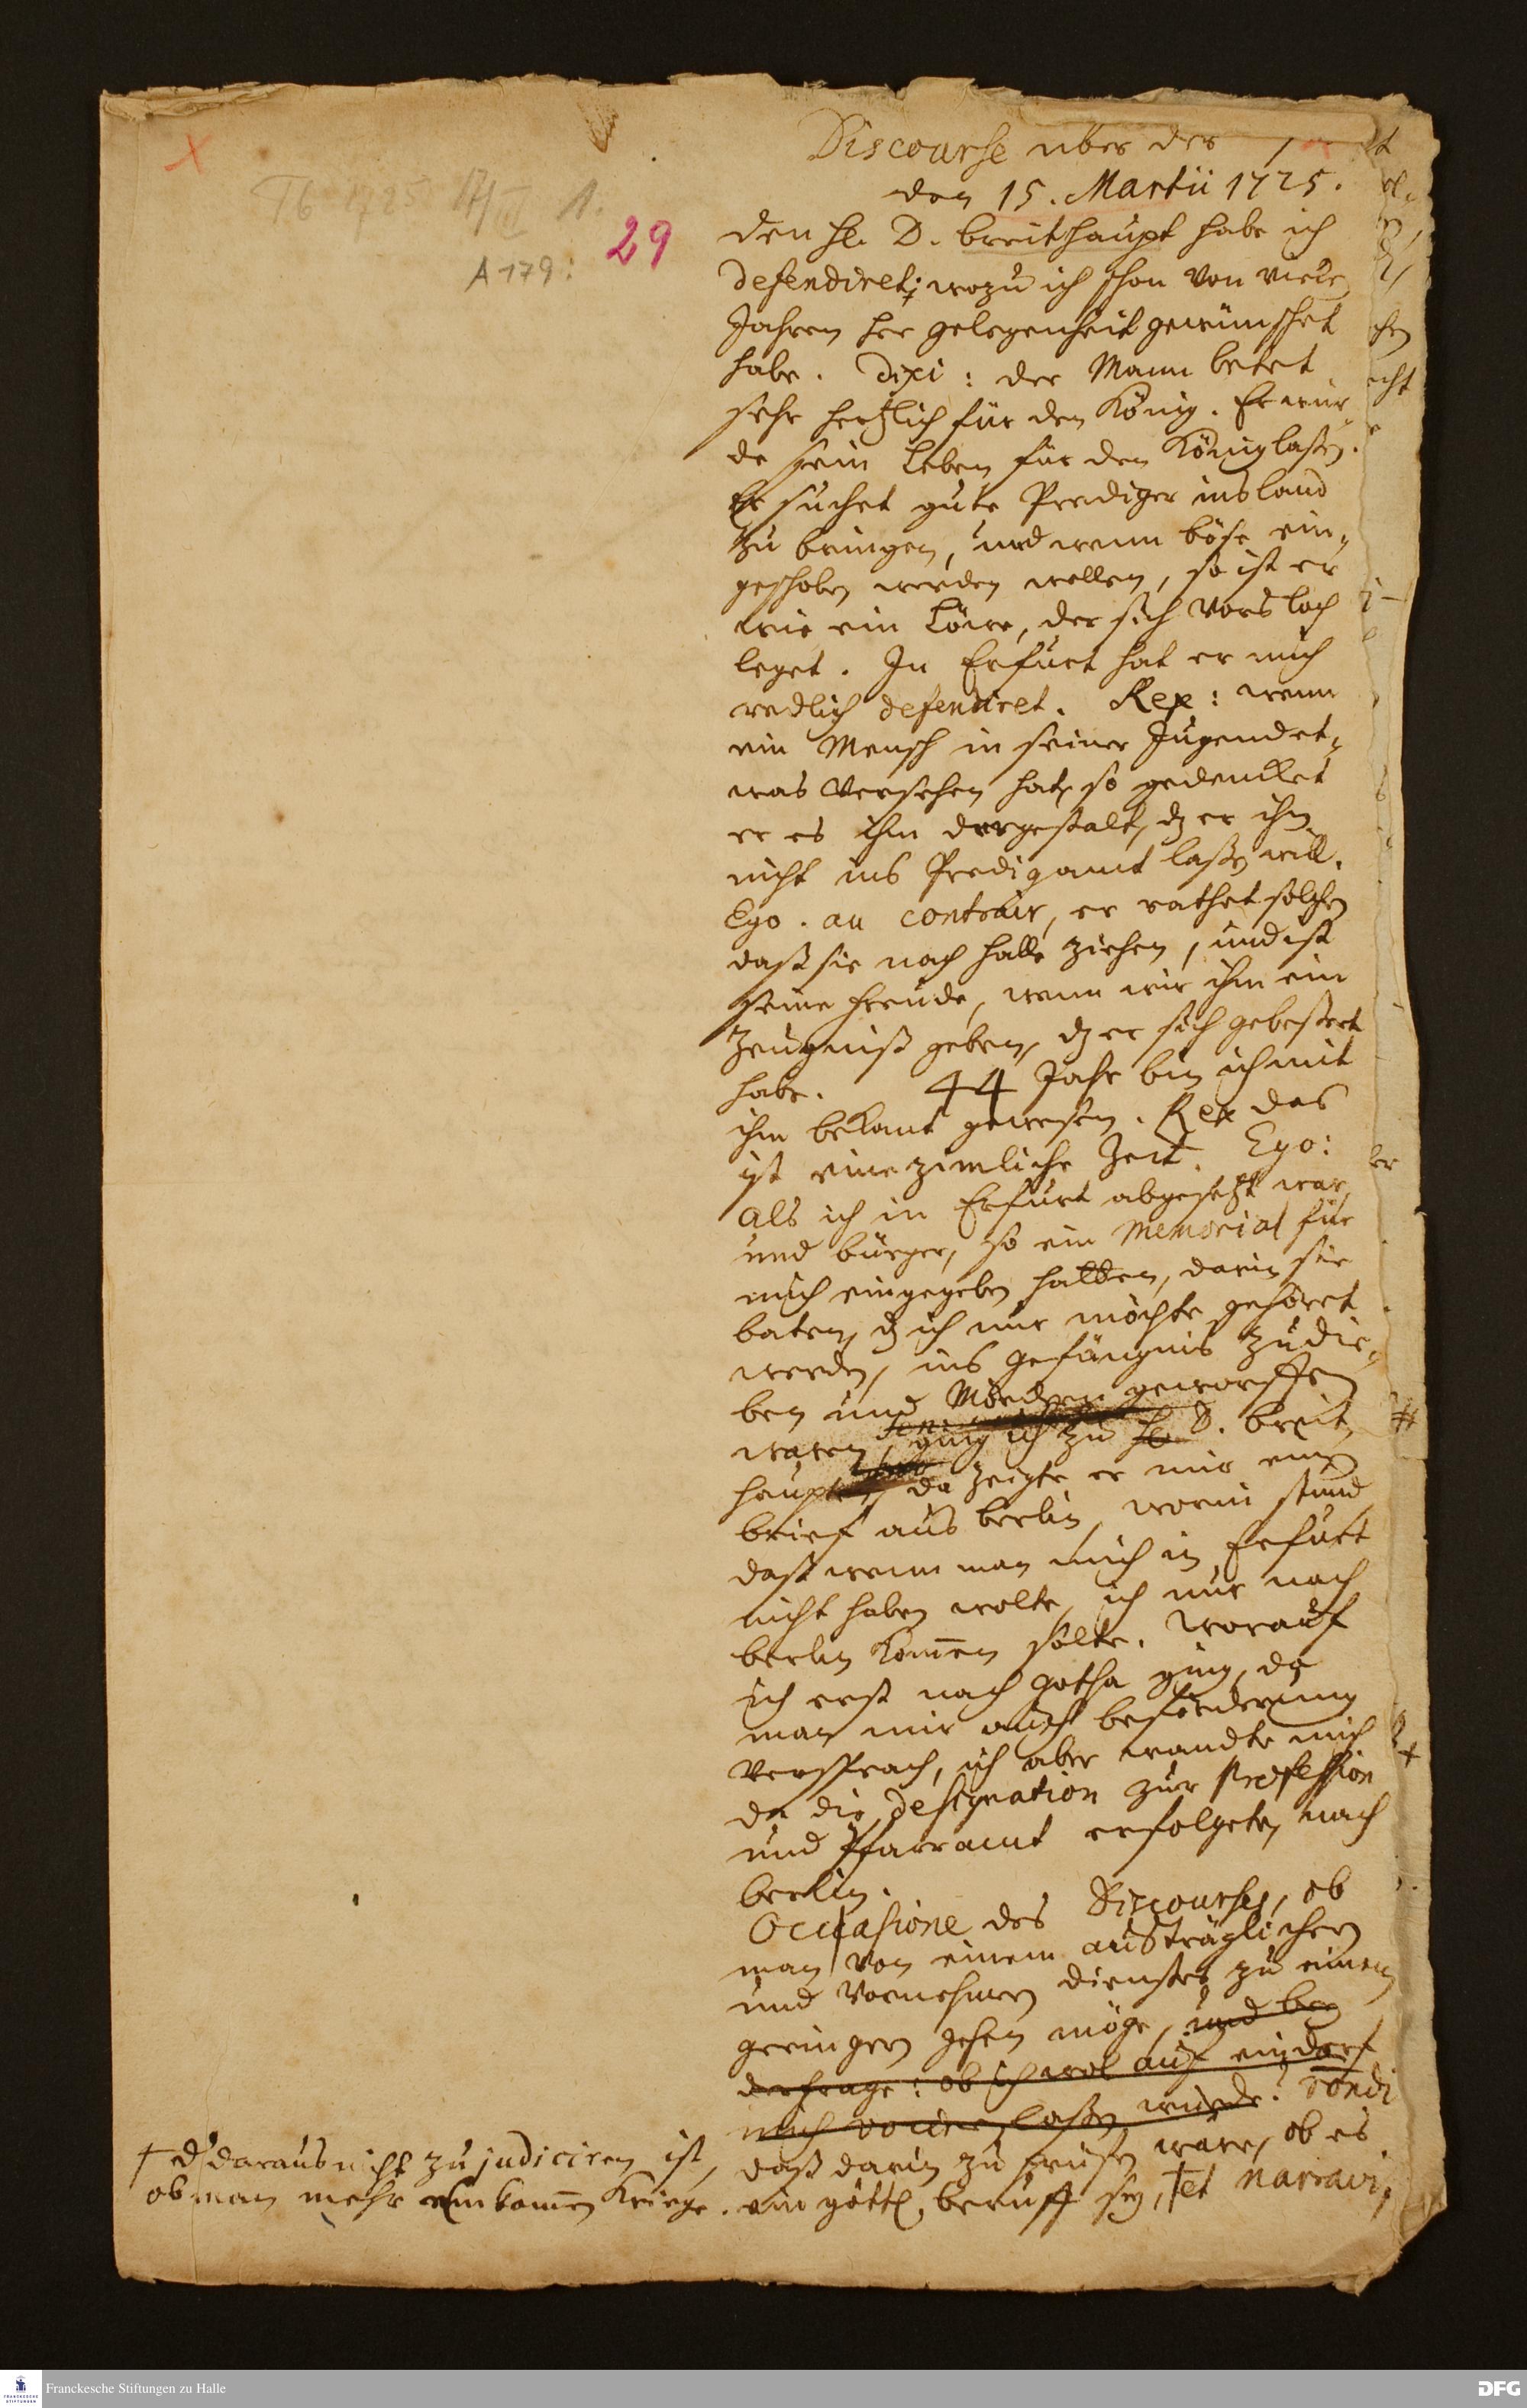 Discourse uber der
den 15. Martii 1725.
TB 1725 17/III 1.
29
A 179:
den H. D. Breithaupt habe ich
defendiret; wozu ich schon von viele
Jahren her gelegenheit gewünschet
habe. Dixi: der Mann betet
sehr hertzlich für den König. Er wür-
de sein Leben für den König laßen.
Er suchet gute Prediger ins land
zu bringen, und wenn böse ein-
geschoben werden wollen, so ist er
wie ein Löwe, der sich vors loch
leget. In Erfurt hat er mich
redlich defendiret. Rex: wenn
ein Mensch in seiner Jugend et-
was versehen hat, so gedencket
er es ihm dergestalt, dz er ihn
nicht ins Predigamt laßen will.
Ego. au contrair, er rathet solchen
daß sie nach Halle ziehen, und ist
seine Freude, wenn wir ihm ein
Zeugniß geben, dz er sich gebeßert
habe. 44 Jahr bin ich mit
ihm bekant gewesen. Rex das
ist eine zimliche Zeit. Ego:
Als ich in Erfurt abgesetzt war,
und bürger, so ein Memorial für
mich eingegeben hatten, darin sie
baten, dz ich nur möchte gehöret
werden, ins gefängnis zu die-
ben und Mördern geworffen
waren, ging ich zu H. D. Breit-
haupt, da zeigte er mir einen
brief aus Berlin, worin stund
daß wenn man mich in Erfurt
nicht haben wolte, ich nur nach
Berlin kom̅en solte. Worauf
ich erst nach Gotha ging, da
man mir auch beförderung
versprach, ich aber wandte mich
da die designation zur Profession
und Pfarramt erfolgete, nach
Berlin.
Occasione des Discourses, ob
man von einem austräglichen
und vornehmen dienste zu einem
geringern gehen möge, und bey
der frage: ob ich wol auf ein dorf
mich vociren laßen würde?
daß darin zu sehen wäre, ob es
ein göttl. beruff sey, † et narravi,
† d daraus nicht zu judiciren ist,
ob man mehr einkom̅en kriege.
Franckesche Stiftungen zu Halle
DFG